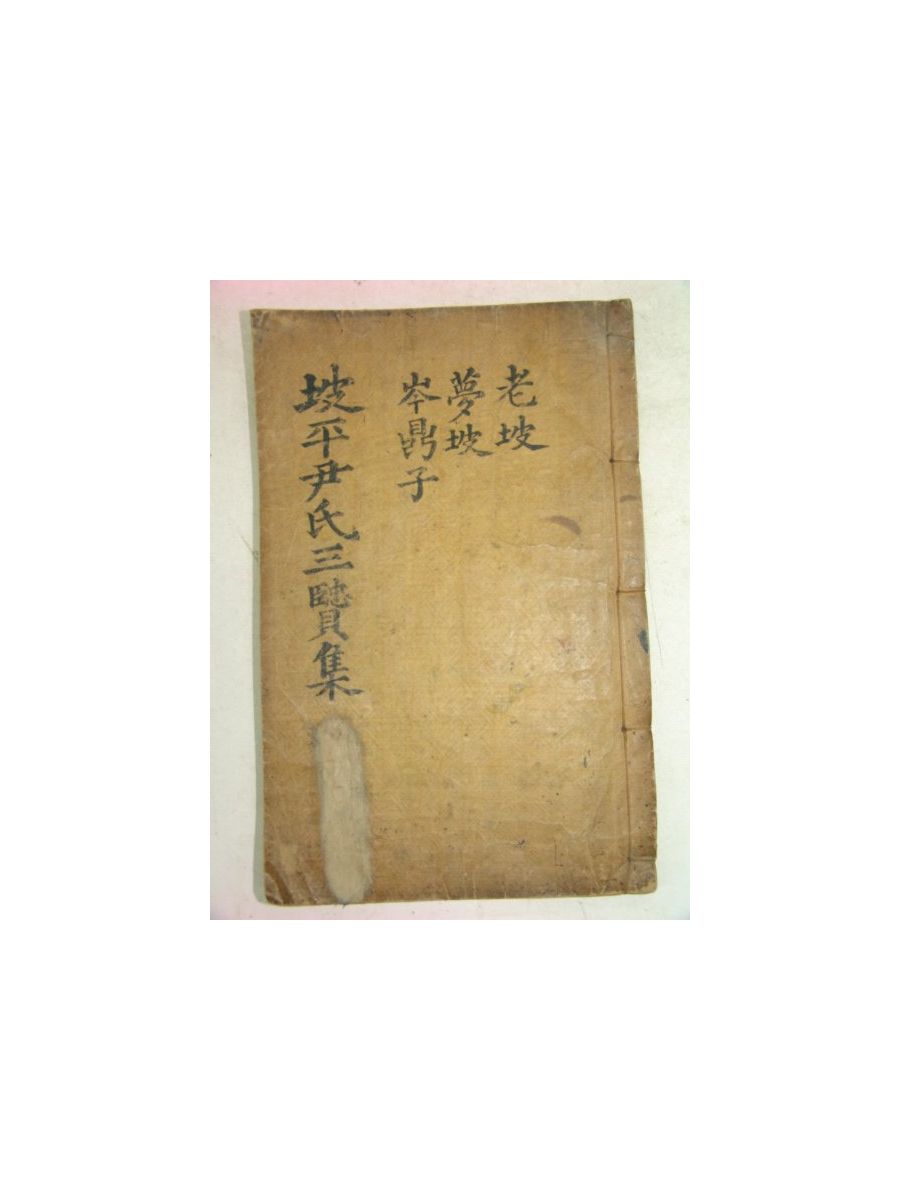 老坡
夢坡
岑鼎子
坡平尹氏三賢集